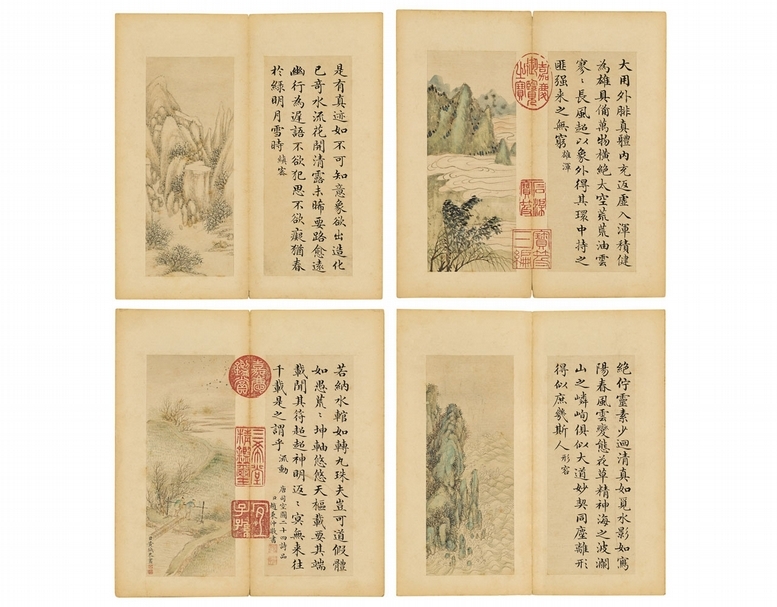 是有真迹如不可知意象欲出造化
已奇水流花開清露未晞要路愈遠
幽行為遲語不欲犯思不欲癡猶春
於綠明月雪時 縝密
嘉慶御覽之寶
石渠寶笈
寶笈三編
大用外腓真體內充返虛入渾積健
為雄具備萬物橫絕太空荒荒油雲
寥〻長風超以象外得其環中持之
匪强来之無窮 雄渾
嘉慶鑑賞
三希堂精鑑璽
宜子孫
若納水輨如轉丸珠夫豈可道假體
如愚荒〻坤軸悠悠天樞載要其端
載聞其符超超神明返〻冥無来往
千載是之謂乎 流動
唐司空圖二十四詩品
臣趙秉沖敬書
絕佇靈素少迴清真如覓水影如寫
陽春風雲變態花草精神海之波瀾
山之嶙峋俱似大道妙契同塵離形
得似庶幾斯人 形容